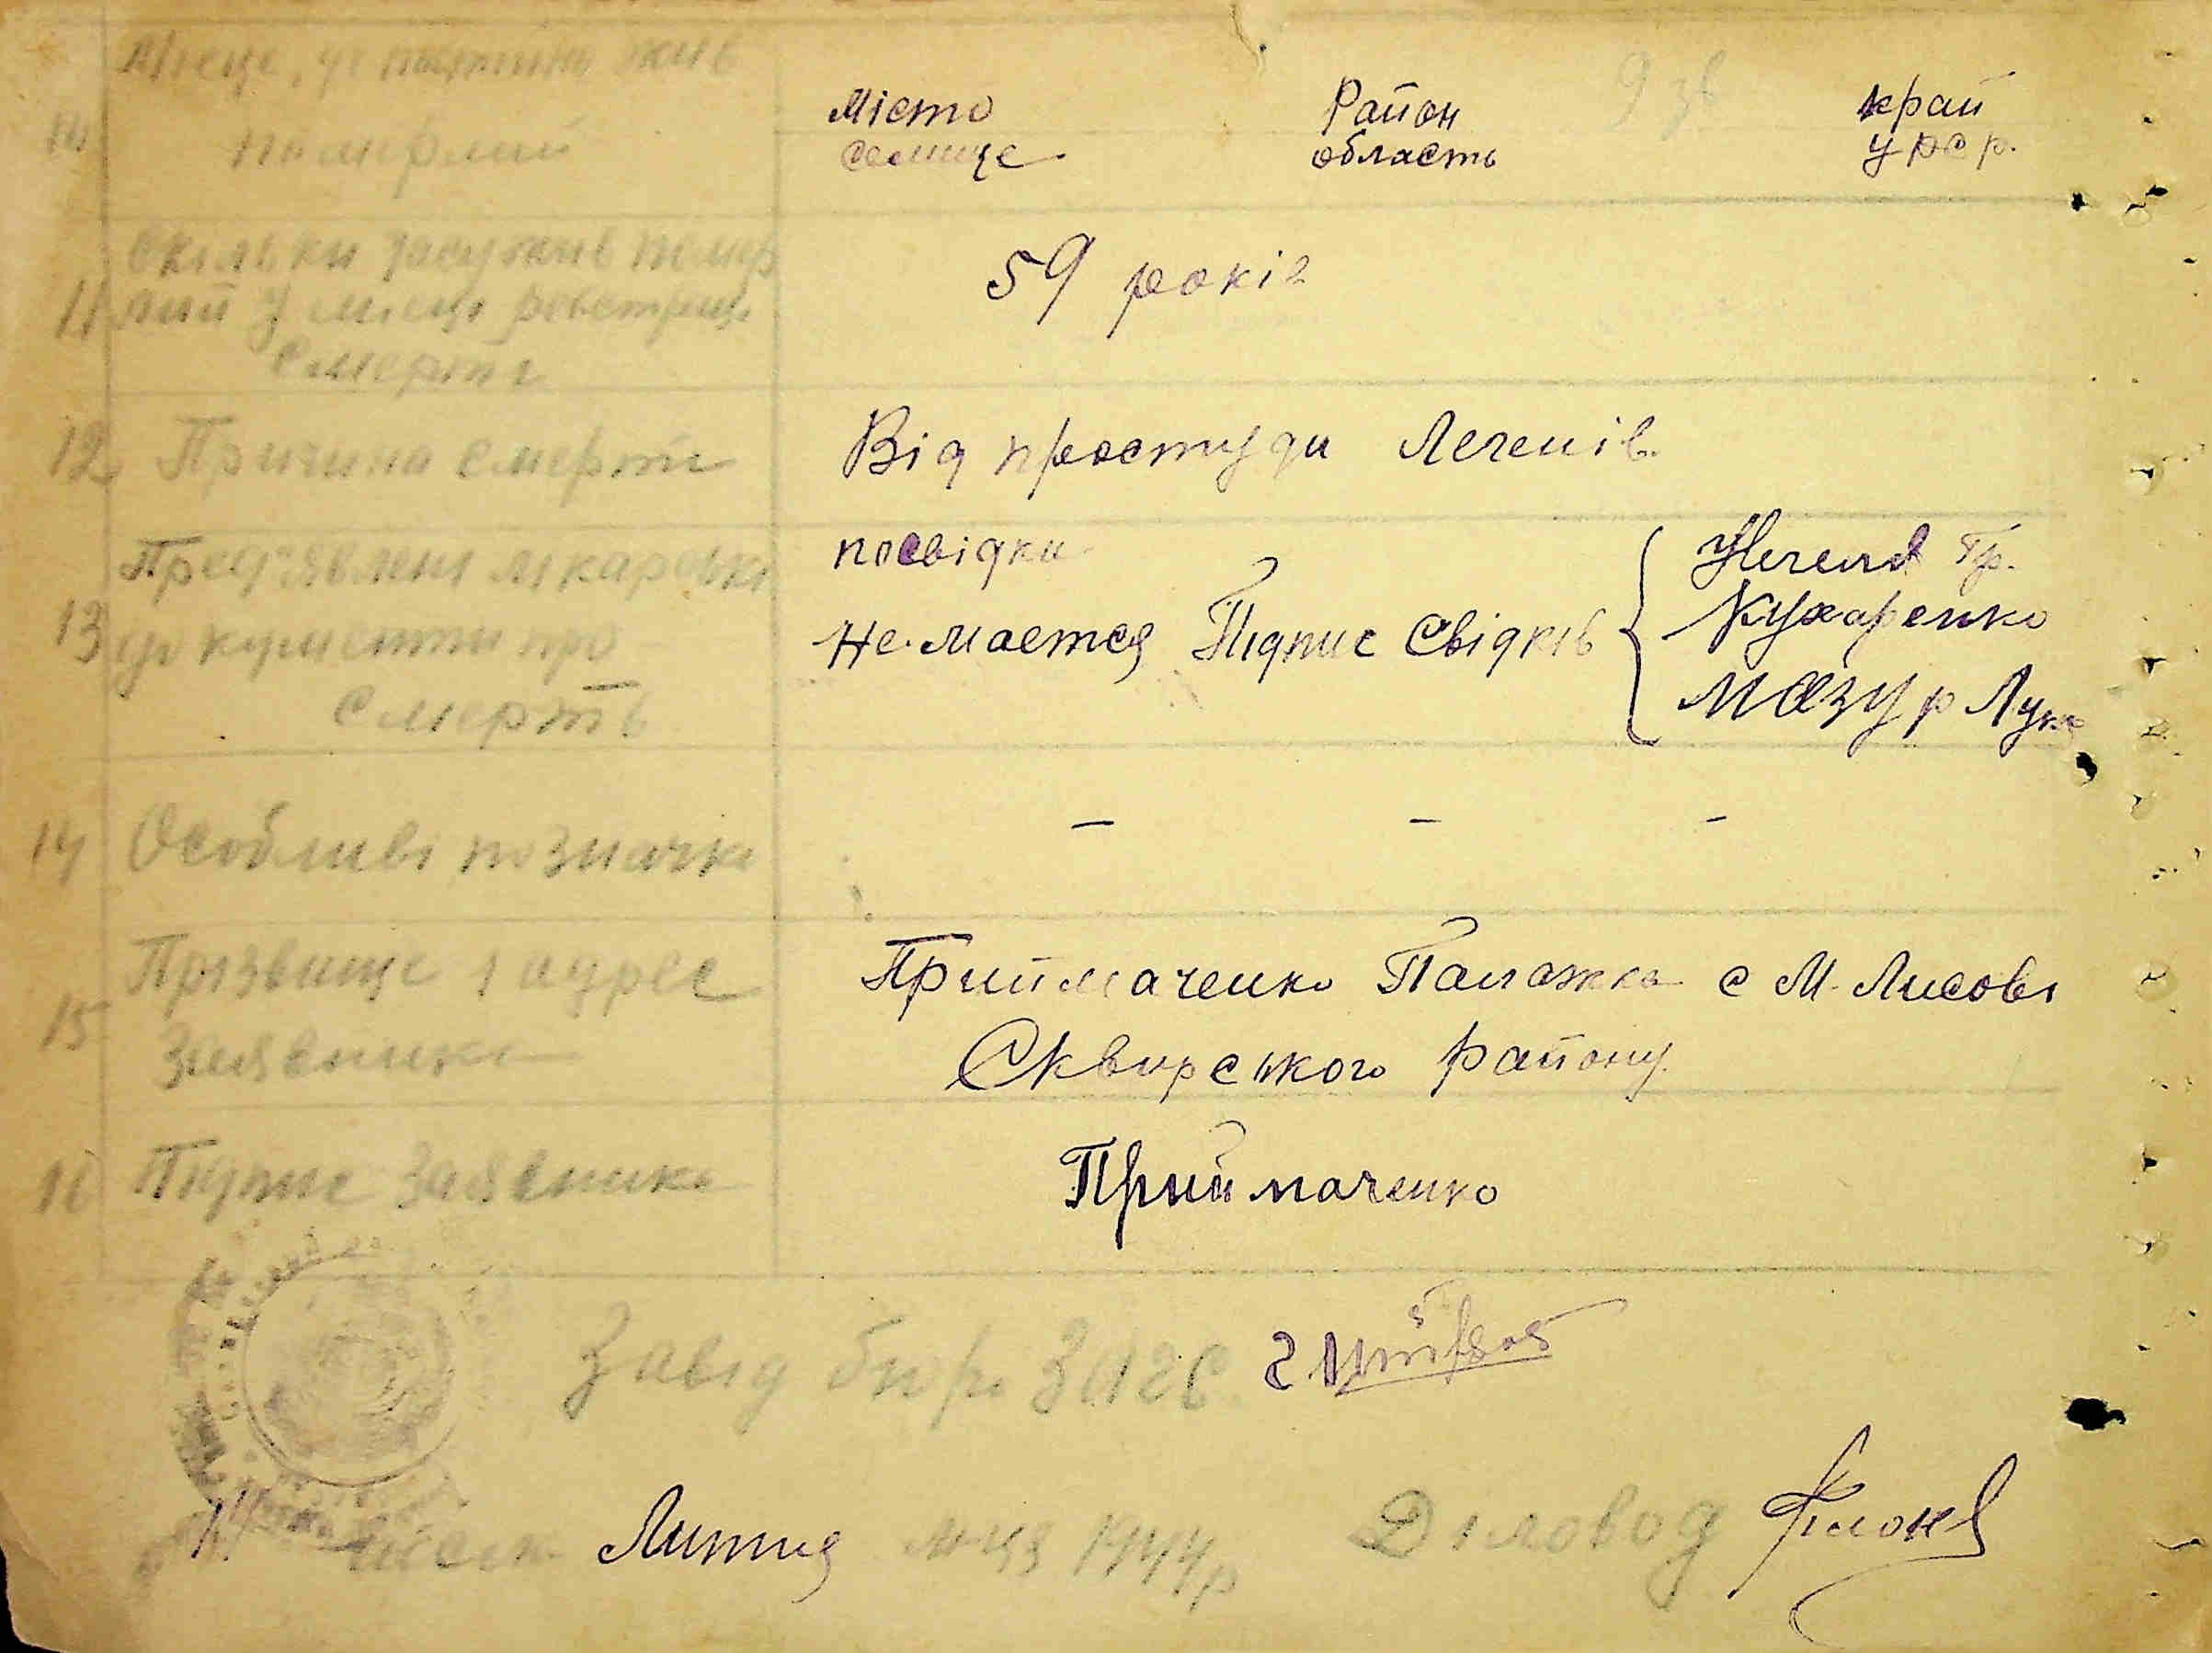 Місце, де постійно жив
10 померлий
Місто Район край
селище область УРСР.
9 зв
Скільки засужив помер
11 лий у місці реєстрації
смерти
59 років
12 Причина смерти
Від простуди Легенів.
Пред'явлені лікарські
13 документи про
смерть
посвідки
Не мается Підпис Свідків
Гр.
Кухаренко
Мазур Лука
14 Особливі позначки
— — —
Прізвище і адрес
15 заявника
Приймаченко Палажка с М. Лисові
Сквирського району.
16 Підпис Заявника
Приймаченко
Завід бюр. ЗАГС.
11 Лютня м-ця 1944р Діловод